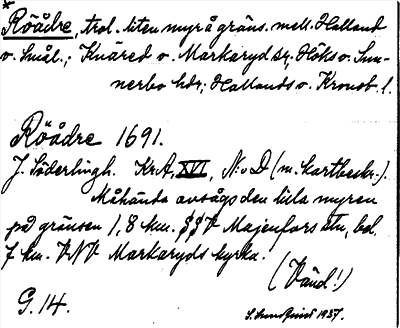 *
Röådre, trol. liten myr å gräns. mell. Halland
o. Smål.; Knäred o. Markaryd sr; Höks o. Sun-
nerbo hdr; Hallands o. Kronob. l.
Röådre 1691.
J. Söderlingh. KrA, XVI, N:o D (m. kartbeskr.).
Måhända avsågs den lilla myren
på gränsen 1,8 km. SSV Majenfors stn, bel.
7 km. VNV Markaryds kyrka.
(Vänd!)
G. 14.
S. Sundquist 1937.